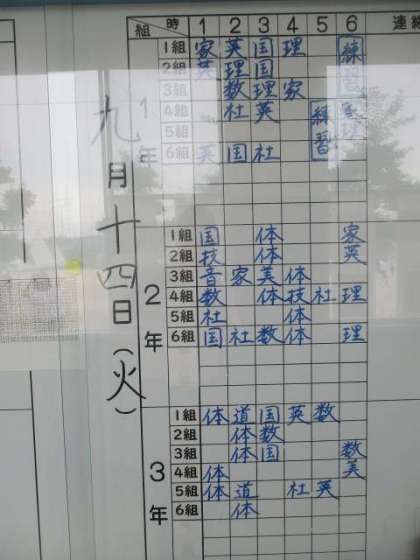 組 時 1 2 3 4 5 6 連絡
九月十四日(火)
1年
1組 家 英 国 理 練習
2組 英 理 国
3組 数 理 家
4組 社 英 練習
5組
6組 英 国 社
2年
1組 国 体 家
2組 技 体 英
3組 音 家 美 体
4組 数 体 技 社 理
5組 社 体
6組 国 社 数 体 理
3年
1組 体 道 国 英 数
2組 体 数
3組 体 国 数
4組 体 美
5組 体 道 社 英
6組 体